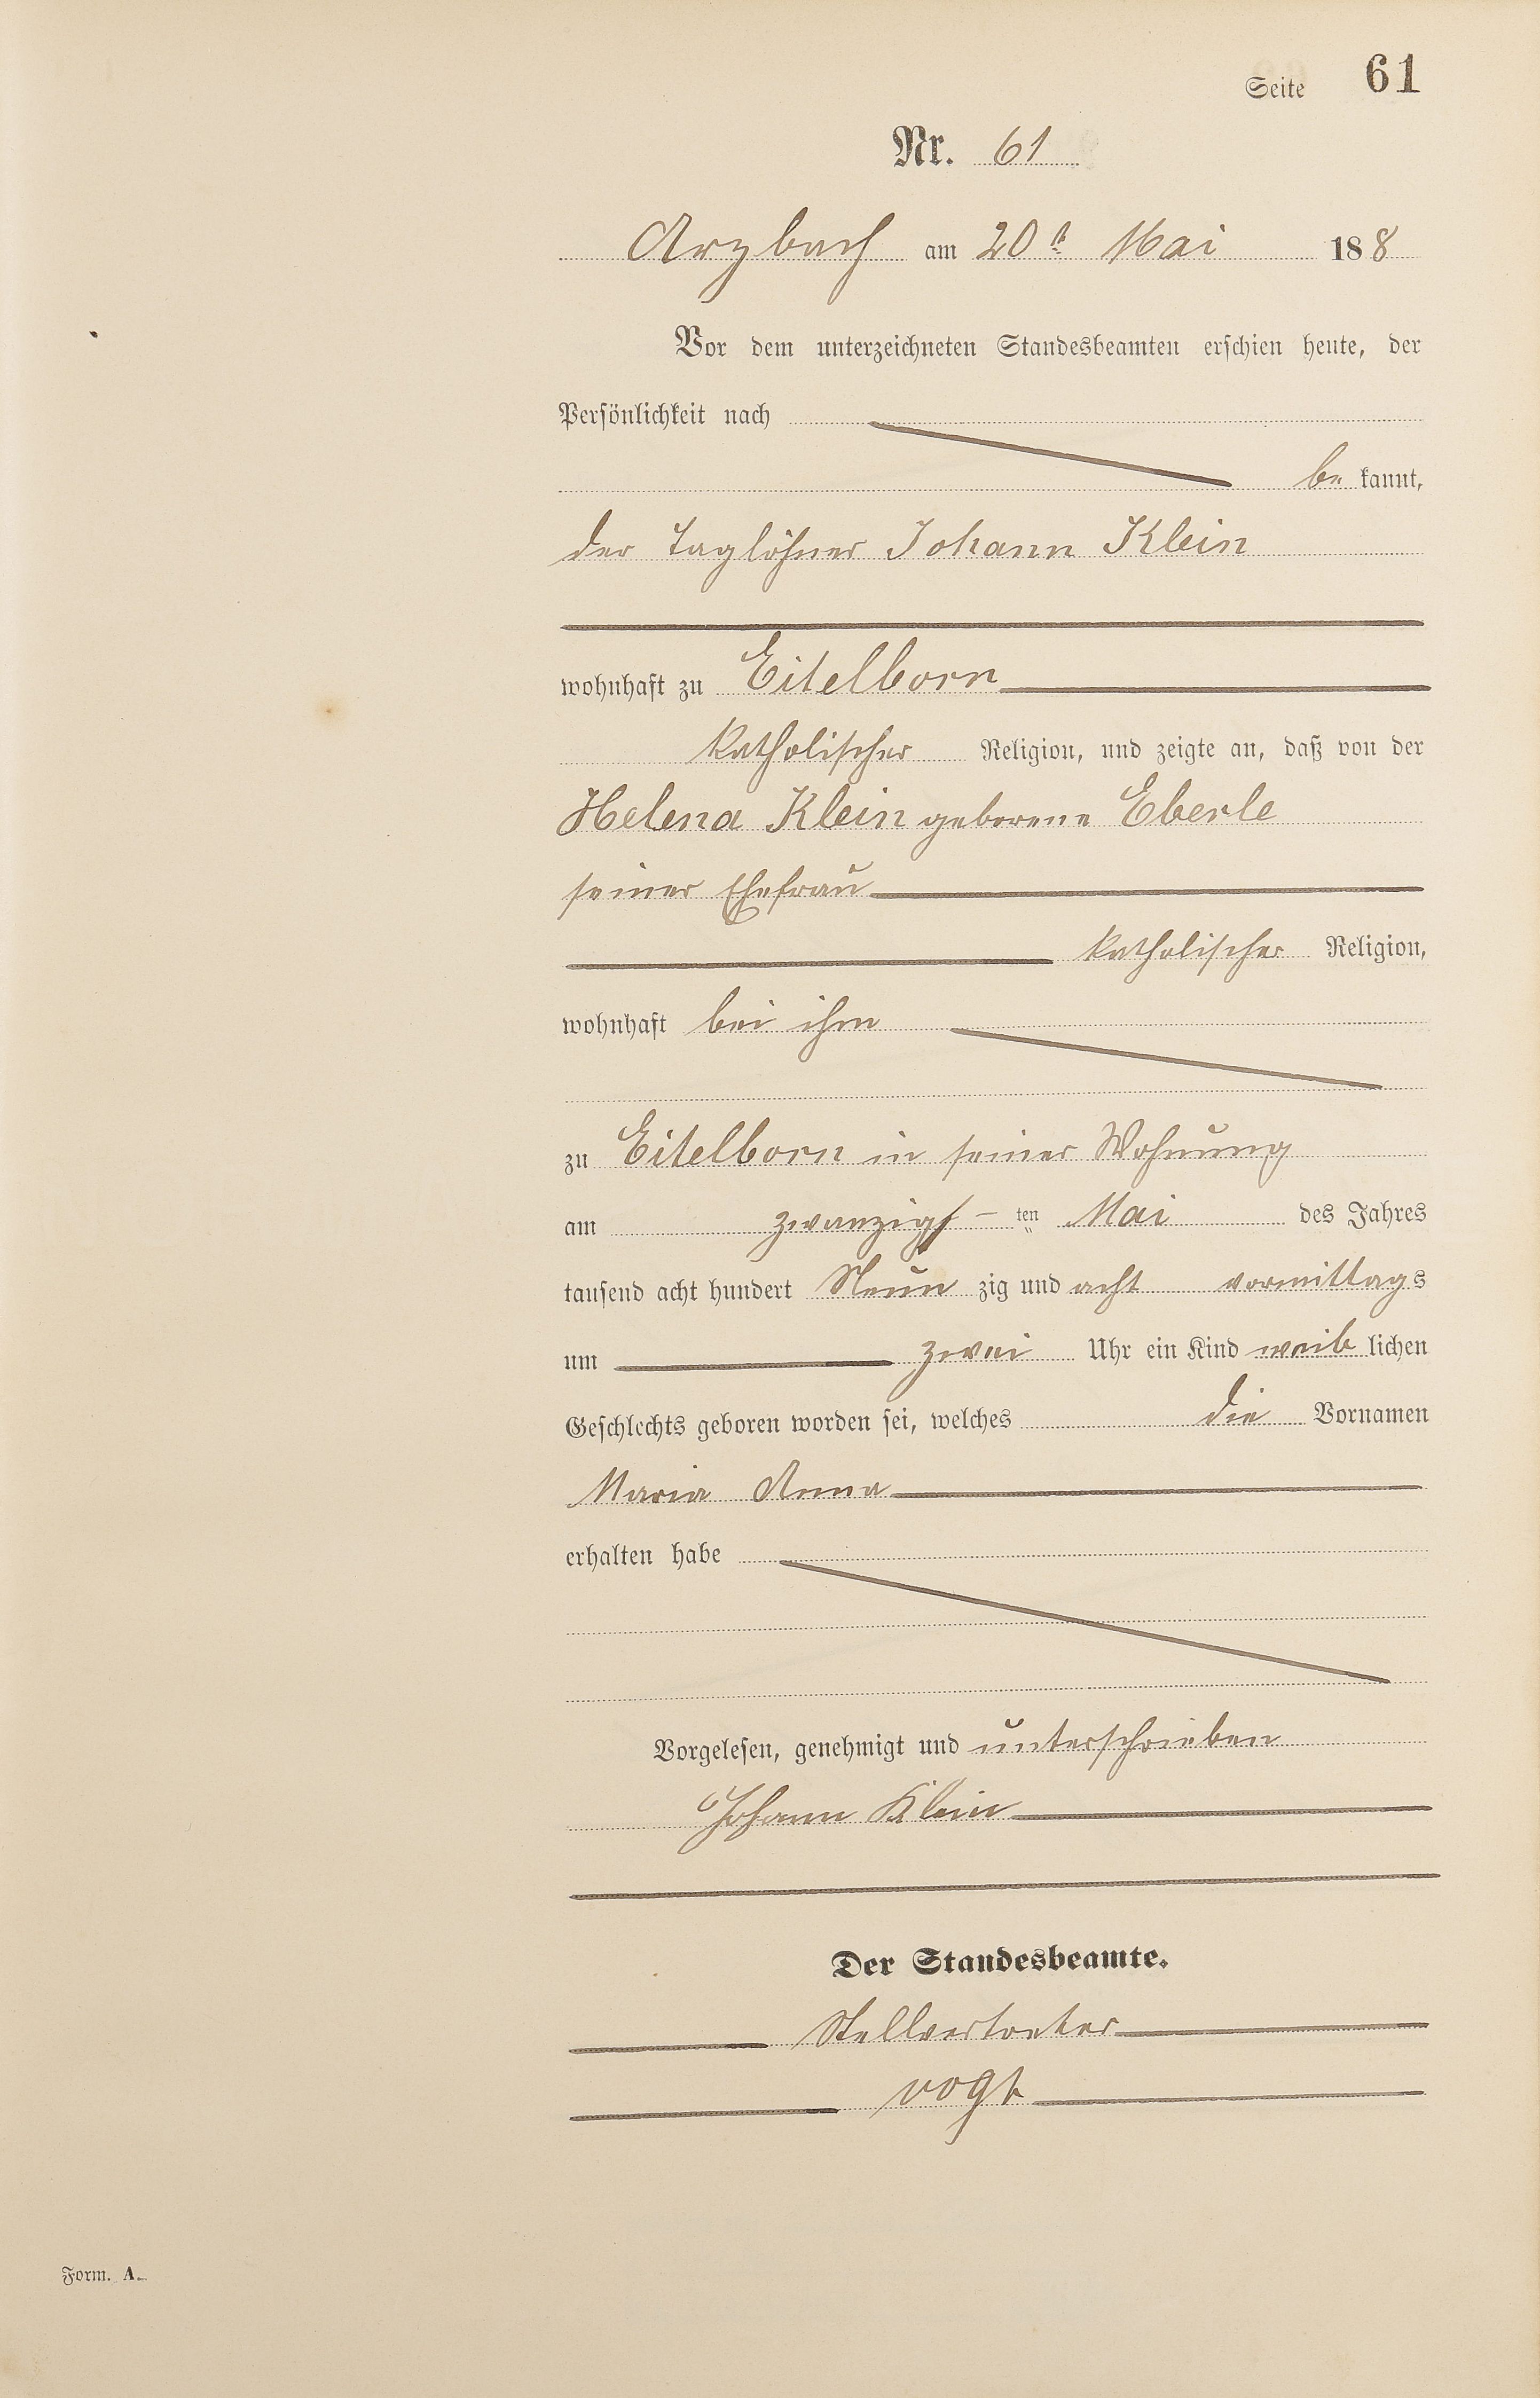 Seite 61
Nr. 61
Arzbach am 20t Mai 188
Vor dem unterzeichneten Standesbeamten erschien heute, der
Persönlichkeit nach
be kannt,
der Taglöhner Johann Klein
wohnhaft zu Eitelborn
katholischer Religion, und zeigte an, daß von der
Helena Klein geborene Eberle
seiner Ehefrau
katholischer Religion,
wohnhaft bei ihm
zu Eitelborn in seiner Wohnung
am zwanzigs - ten Mai des Jahres
tausend acht hundert Neun zig und acht vormittags
um zwei Uhr ein Kind weib lichen
Geschlechts geboren worden sei, welches die Vornamen
Maria Anna
erhalten habe
Vorgelesen, genehmigt und unterschrieben
Johann Klein
Der Standesbeamte.
Stellvertreter
Vogt
Form. A.